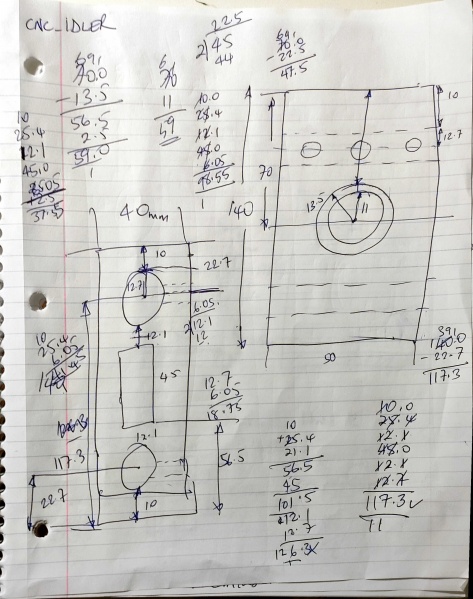 CNC_IDLER
69,
70.0
- 13.5
56.5
2.5
59.0
1
6
70
11
59
225
2√45
44
69,
70.0
- 22.5
47.5
10
25.4
12.1
45.0
37.5
10.0
25.4
12.1
45.0
6.05
98.55
1
40mm
10
22.7
12.7
6.05
2√12.1
12
12.1
45
12.7
6.05
18.75
12.1
56.5
10
117.3
22.7
10
25.4
6.05
10
12.7
70
140
13.5
11
50
39,
140.0
- 22.7
117.3
10
+25.4
21.1
56.5
45
101.5
12.1
12.7
126.3x
10.0
25.4
12.1
45.0
12.1
12.7
117.3✓
11